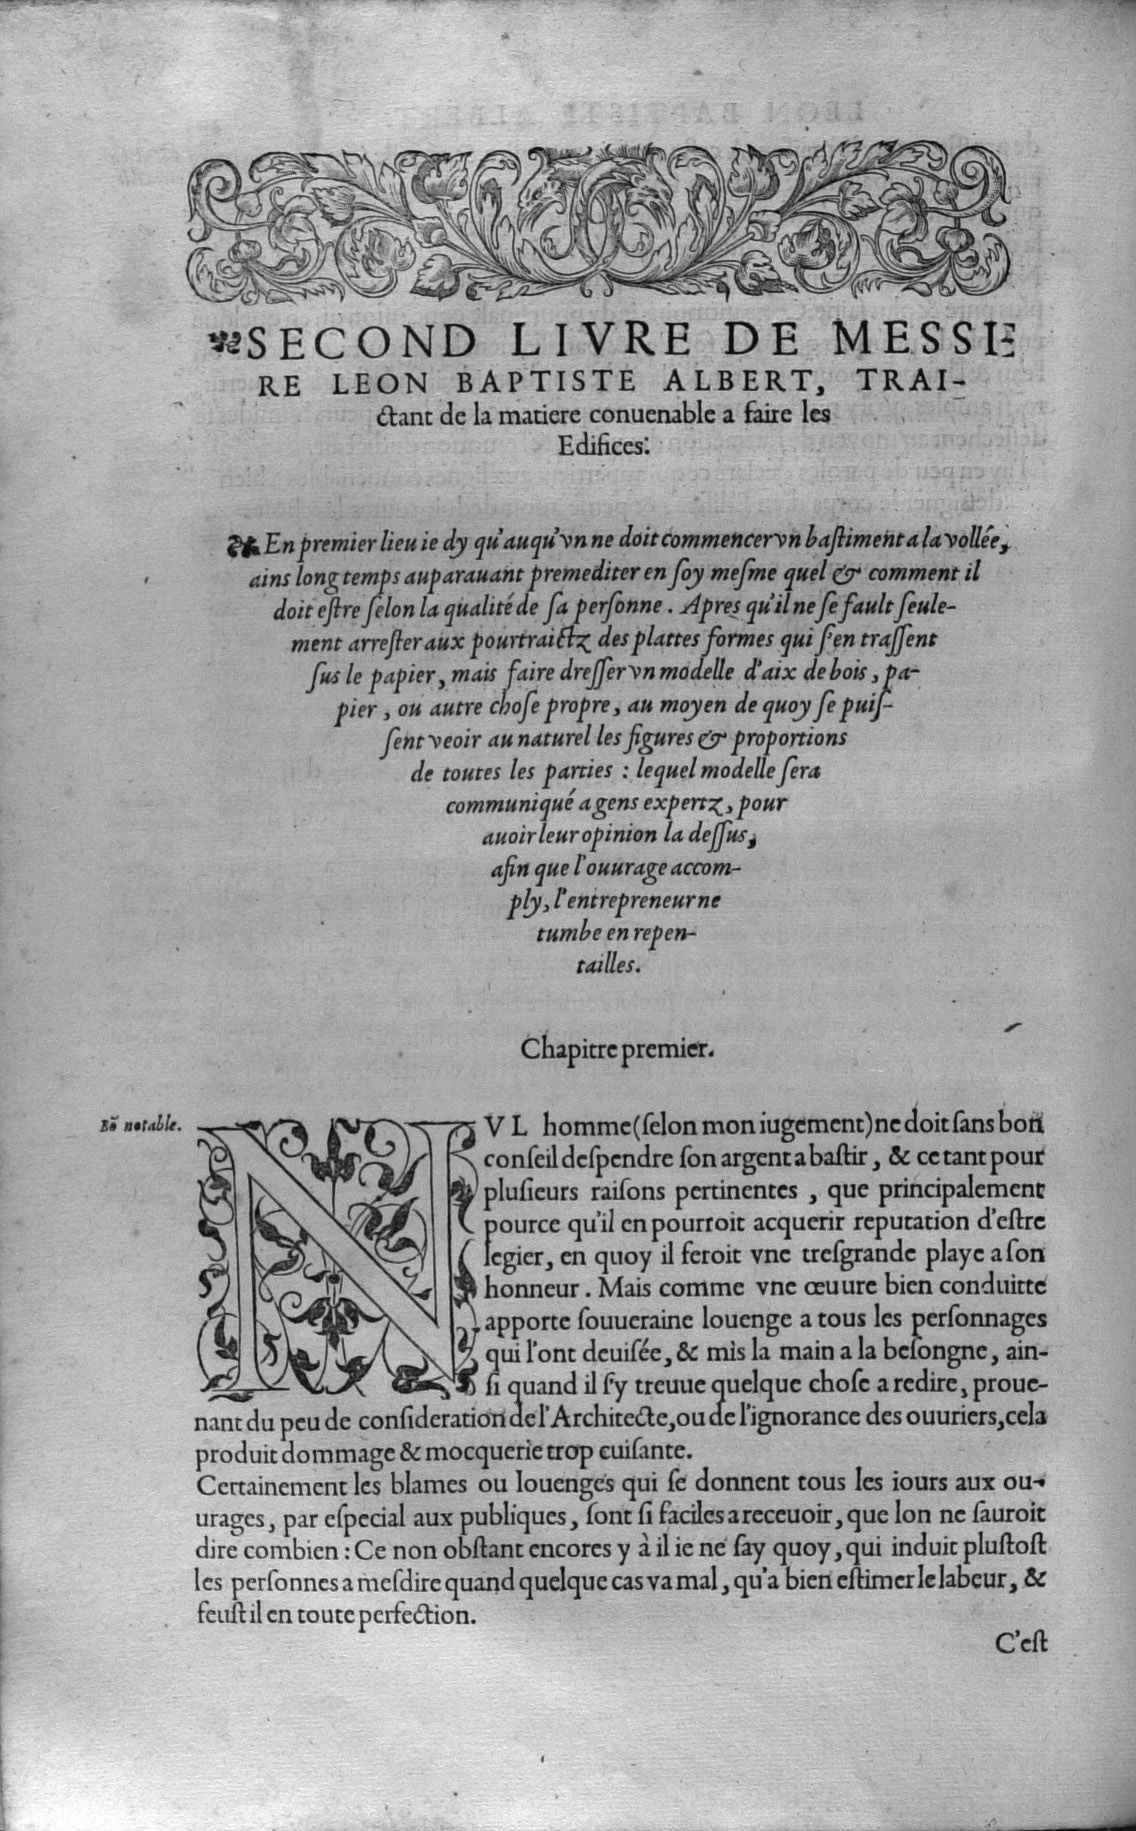 SECOND LIVRE DE MESSI-
RE LEON BAPTISTE ALBERT, TRAI-
ctant de la matiere conuenable a faire les
Edifices:
En premier lieu ie dy qu'auqu'vn ne doit commencer vn bastiment a la vollée,
ains long temps auparauant premediter en soy mesme quel & comment il
doit estre selon la qualité de sa personne. Apres qu'il ne se fault seule-
ment arrester aux pourtraictz des plattes formes qui s'en trassent
sus le papier, mais faire dresser vn modelle d'aix de bois, pa-
pier, ou autre chose propre, au moyen de quoy se puis-
sent veoir au naturel les figures & proportions
de toutes les parties : lequel modelle sera
communiqué a gens expertz, pour
auoir leur opinion la dessus,
afin que l'ouurage accom-
ply, l'entrepreneur ne
tumbe en repen-
tailles.
Chapitre premier.
Bõ notable.
NVL homme (selon mon iugement) ne doit sans bon
conseil despendre son argent a bastir, & ce tant pour
plusieurs raisons pertinentes, que principalement
pource qu'il en pourroit acquerir reputation d'estre
legier, en quoy il feroit vne tresgrande playe a son
honneur. Mais comme vne œuure bien conduitte
apporte souueraine louenge a tous les personnages
qui l'ont deuisée, & mis la main a la besongne, ain-
si quand il s'y treuue quelque chose a redire, proue-
nant du peu de consideration de l'Architecte, ou de l'ignorance des ouuriers, cela
produit dommage & mocquerie trop cuisante.
Certainement les blames ou louenges qui se donnent tous les iours aux ou-
urages, par especial aux publiques, sont si faciles a receuoir, que lon ne sauroit
dire combien : Ce non obstant encores y à il ie ne say quoy, qui induit plustost
les personnes a mesdire quand quelque cas va mal, qu'a bien estimer le labeur, &
feust il en toute perfection.
C'est